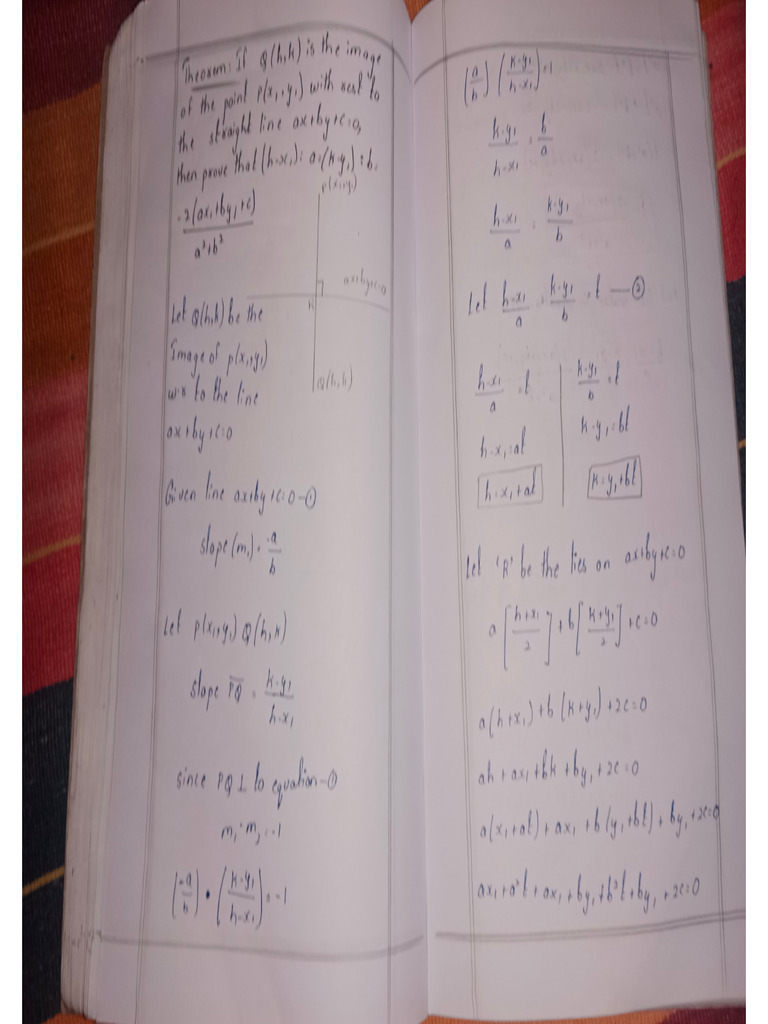 Theorem: If Q(h,k) is the image
of the point P(x₁,y₁) with rest to
the straight line ax+by+c=0,
then prove that (h-x₁): a=(k-y₁):b=
-2(ax₁+by₁+c)
a²+b²
P(x₁,y₁)
ax+by+c=0
R
Q(h,k)
Let Q(h,k) be the
Image of P(x₁,y₁)
w.r to the line
ax+by+c=0
Given line ax+by+c=0-①
slope(m₁)=-a/b
Let P(x₁,y₁) Q(h,k)
slope PQ = k-y₁/h-x₁
since PQ ⊥ to equation-①
m₁·m₂=-1
(-a/b) • (k-y₁/h-x₁) = -1
(a/b) (k-y₁/h-x₁)=1
k-y₁/h-x₁ = b/a
h-x₁/a = k-y₁/b
Let h-x₁/a = k-y₁/b = t —②
h-x₁/a = t
h-x₁=at
h=x₁+at
k-y₁/b = t
k-y₁=bt
k=y₁+bt
Let 'R' be the lies on ax+by+c=0
a[h+x₁/2]+b[k+y₁/2]+c=0
a(h+x₁)+b(k+y₁)+2c=0
ah+ax₁+bk+by₁+2c=0
a(x₁+at)+ax₁+b(y₁+bt)+by₁+2c=0
ax₁+a²t+ax₁+by₁+b²t+by₁+2c=0